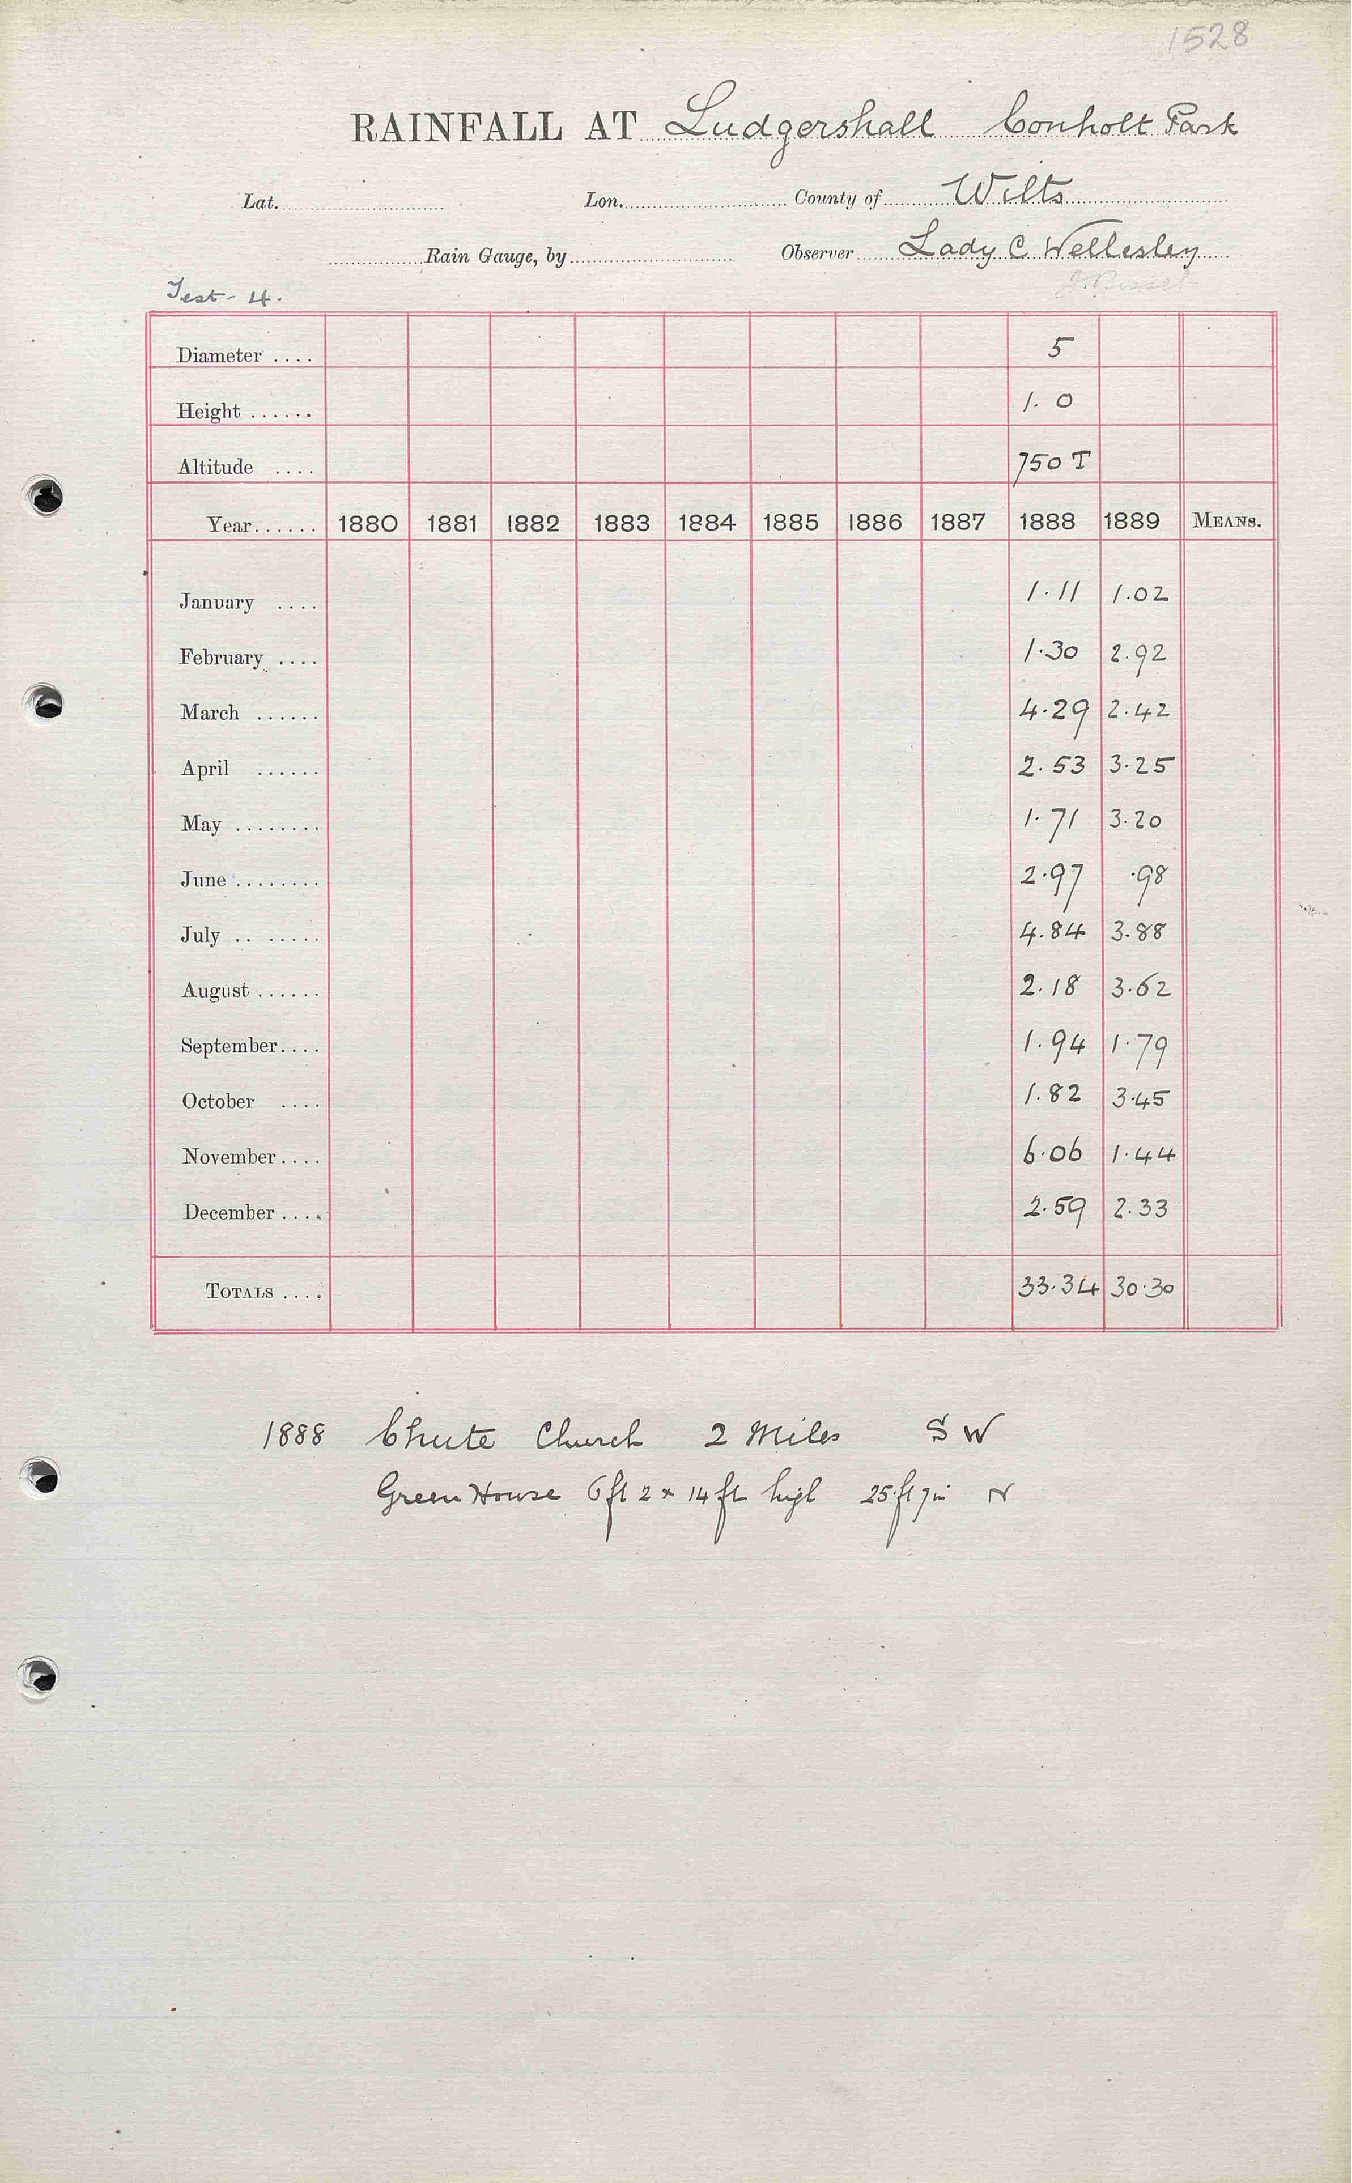 1528
RAINFALL AT Ludgershall Conholt Park
Lat. Lon. County of Wilts
Rain Gauge, by Observer Lady C Wellesley
J. Bisset
Test- 4.
Diameter .... 5
Height ...... 1. 0
Altitude .... 750 T
Year...... 1880 1881 1882 1883 1884 1885 1886 1887 1888 1889 MEANS.
January .... 1.11 1.02
February .... 1.30 2.92
March ...... 4.29 2.42
April ...... 2.53 3.25
May ........ 1.71 3.20
June ........ 2.97 .98
July .. ..... 4.84 3.88
August ...... 2.18 3.62
September.... 1.94 1.79
October .... 1.82 3.45
November.... 6.06 1.44
December .... 2.59 2.33
TOTALS .... 33.34 30.30
1888 Chute Church 2 Miles S W
Green House 6ft 2 × 14 ft high 25 ft 7in N